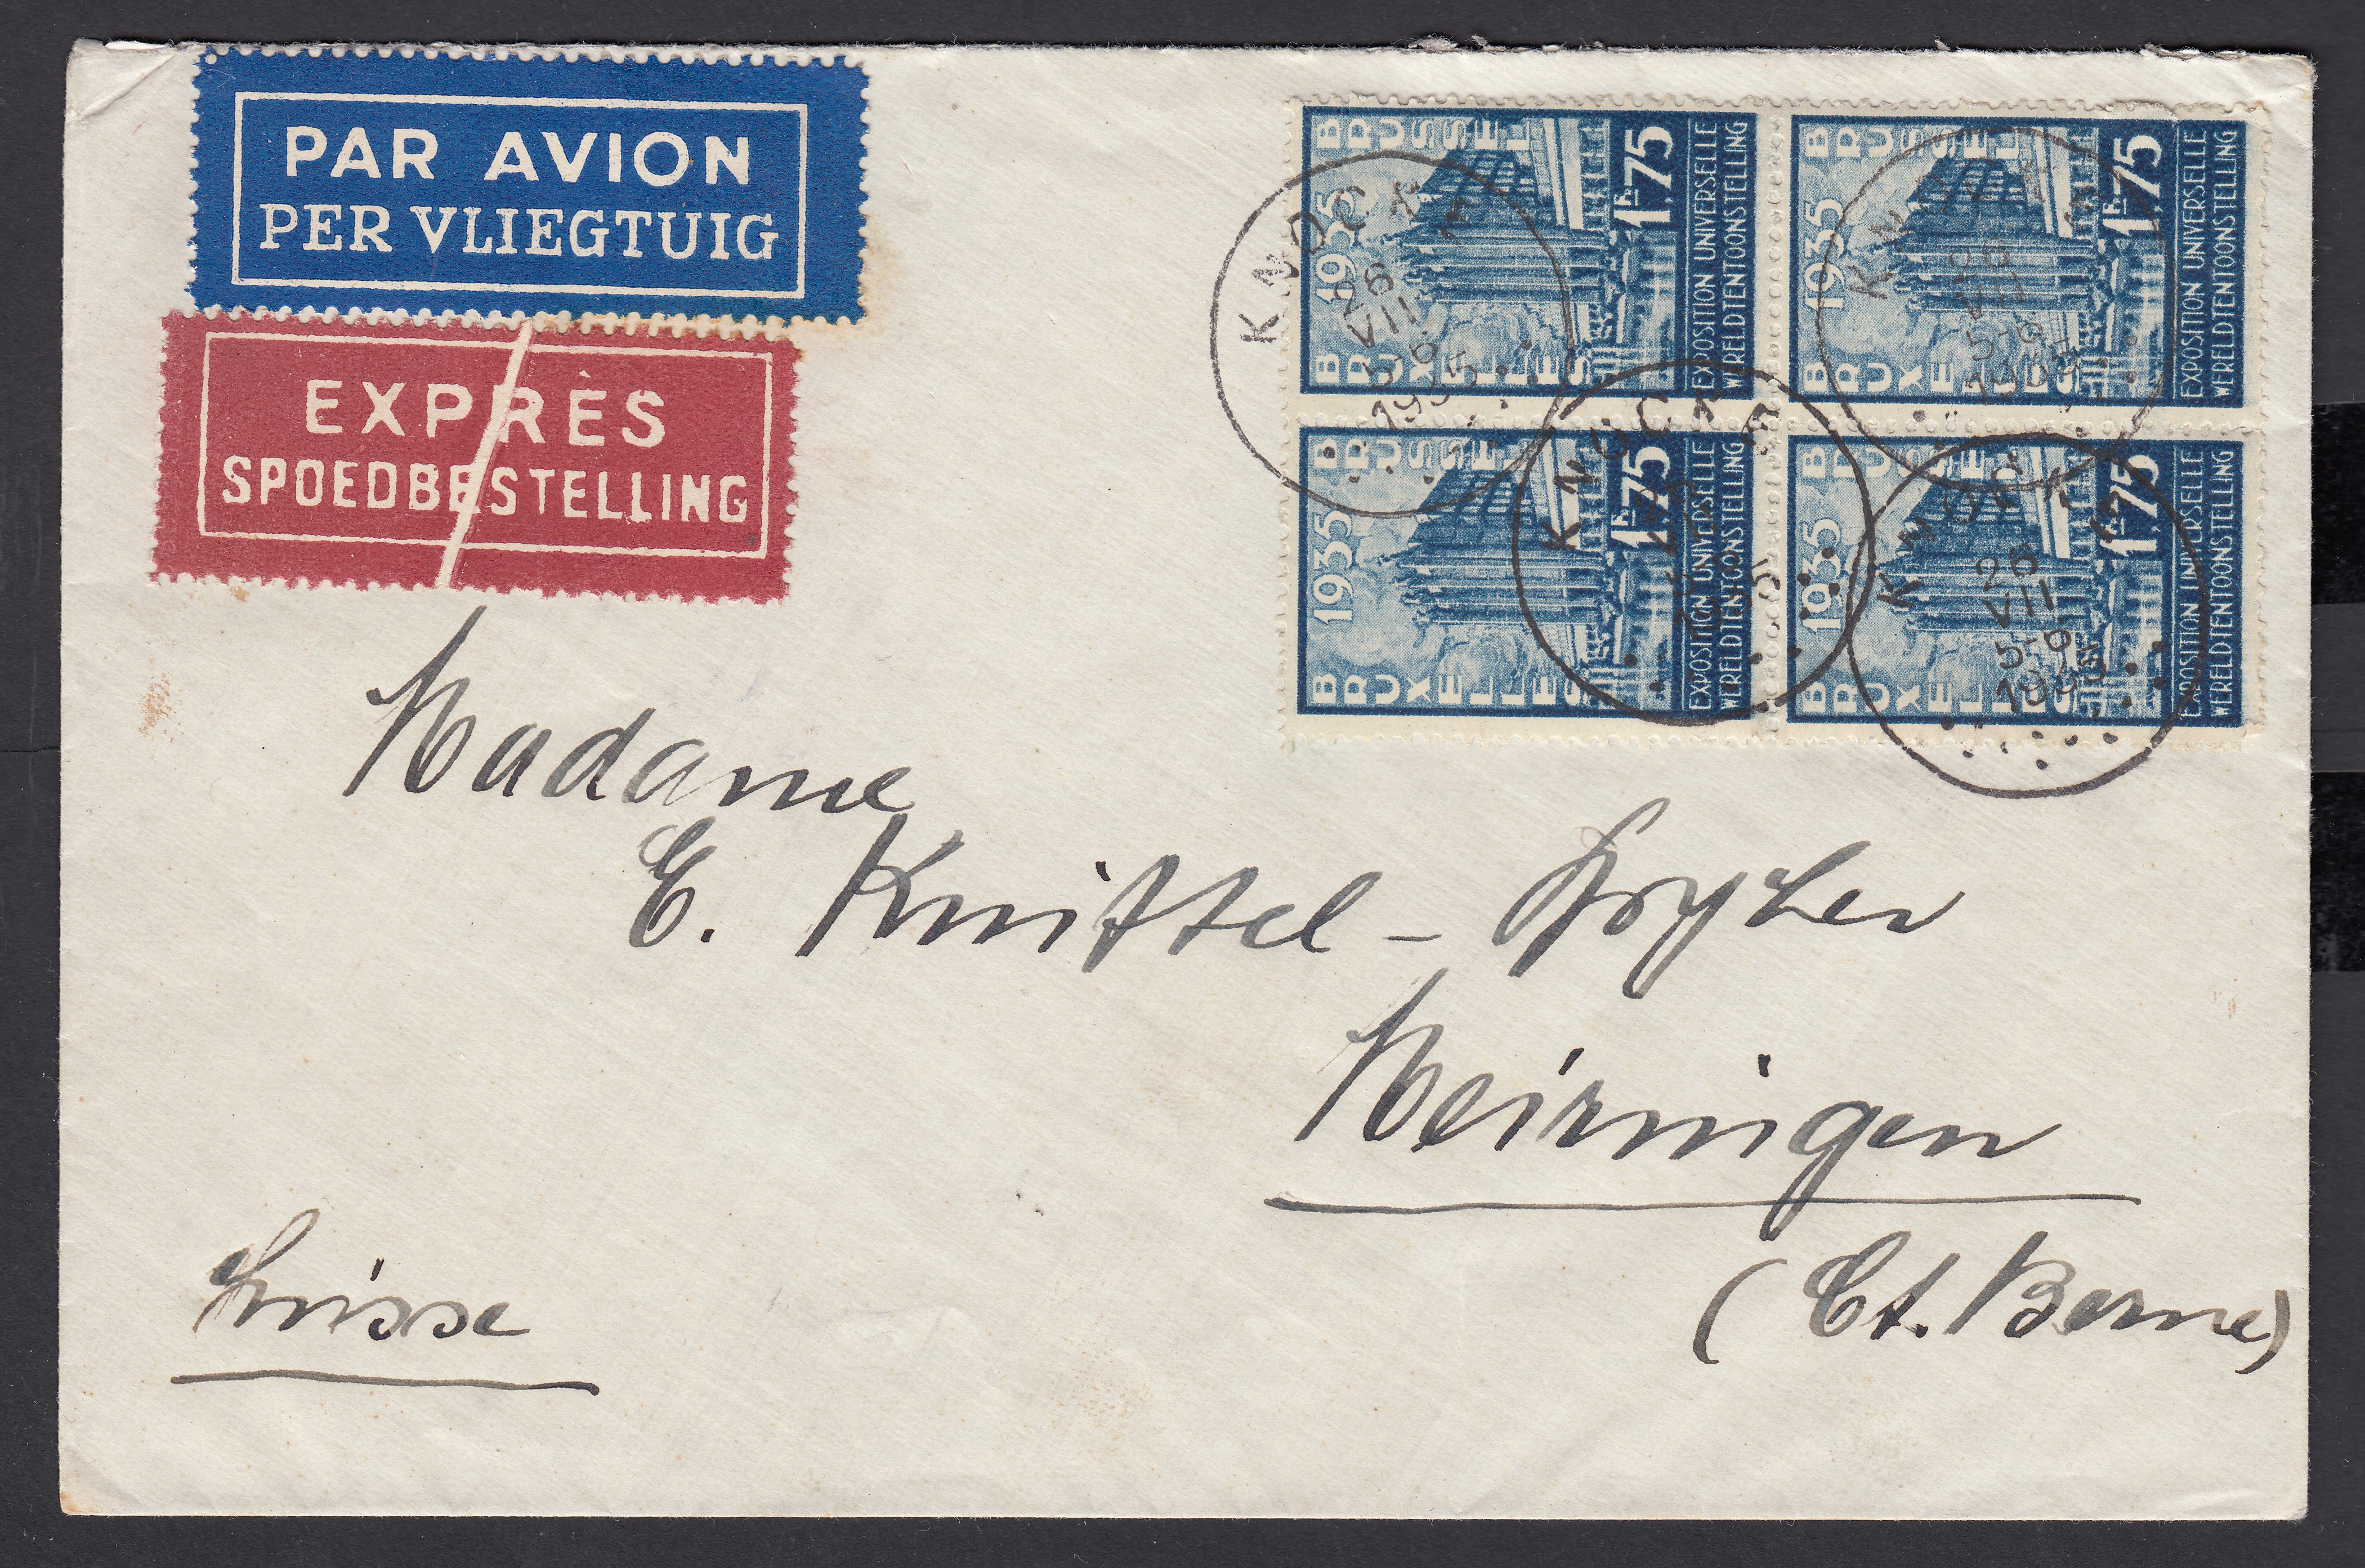 PAR AVION
PER VLIEGTUIG
EXPRÈS
SPOEDBESTELLING
BRUSSEL
1935
BRUXELLES
1F75
EXPOSITION UNIVERSELLE
WERELDTENTOONSTELLING
BRUSSEL
1935
BRUXELLES
1F75
EXPOSITION UNIVERSELLE
WERELDTENTOONSTELLING
BRUSSEL
1935
BRUXELLES
1F75
EXPOSITION UNIVERSELLE
WERELDTENTOONSTELLING
BRUSSEL
1935
BRUXELLES
1F75
EXPOSITION UNIVERSELLE
WERELDTENTOONSTELLING
KNOCKE
26
VII
1935
KNOCKE
26
VII
1935
KNOCKE
KNOCKE
26
VII
1935
Madame
E. Knittel -
Meiringen
(Ct. Berne)
Suisse